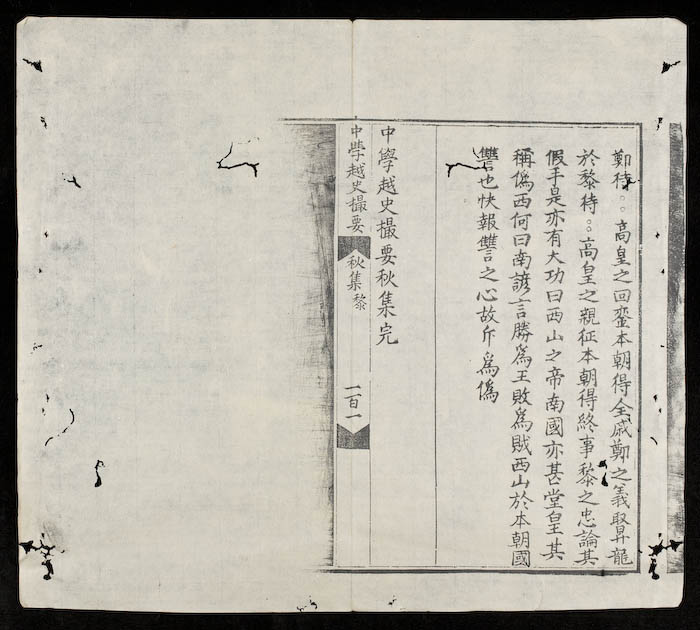 鄭待高皇之回鑾本朝得全戚鄭之義取昇龍
於黎待高皇之親征本朝得終事黎之忠論其
假手是亦有大功曰西山之帝南國亦甚堂皇其
稱僞西何曰南諺言勝爲王敗爲賊西山於本朝國
讐也快報讐之心故斥爲僞
中學越史撮要秋集完
中學越史撮要
秋集黎
一百一